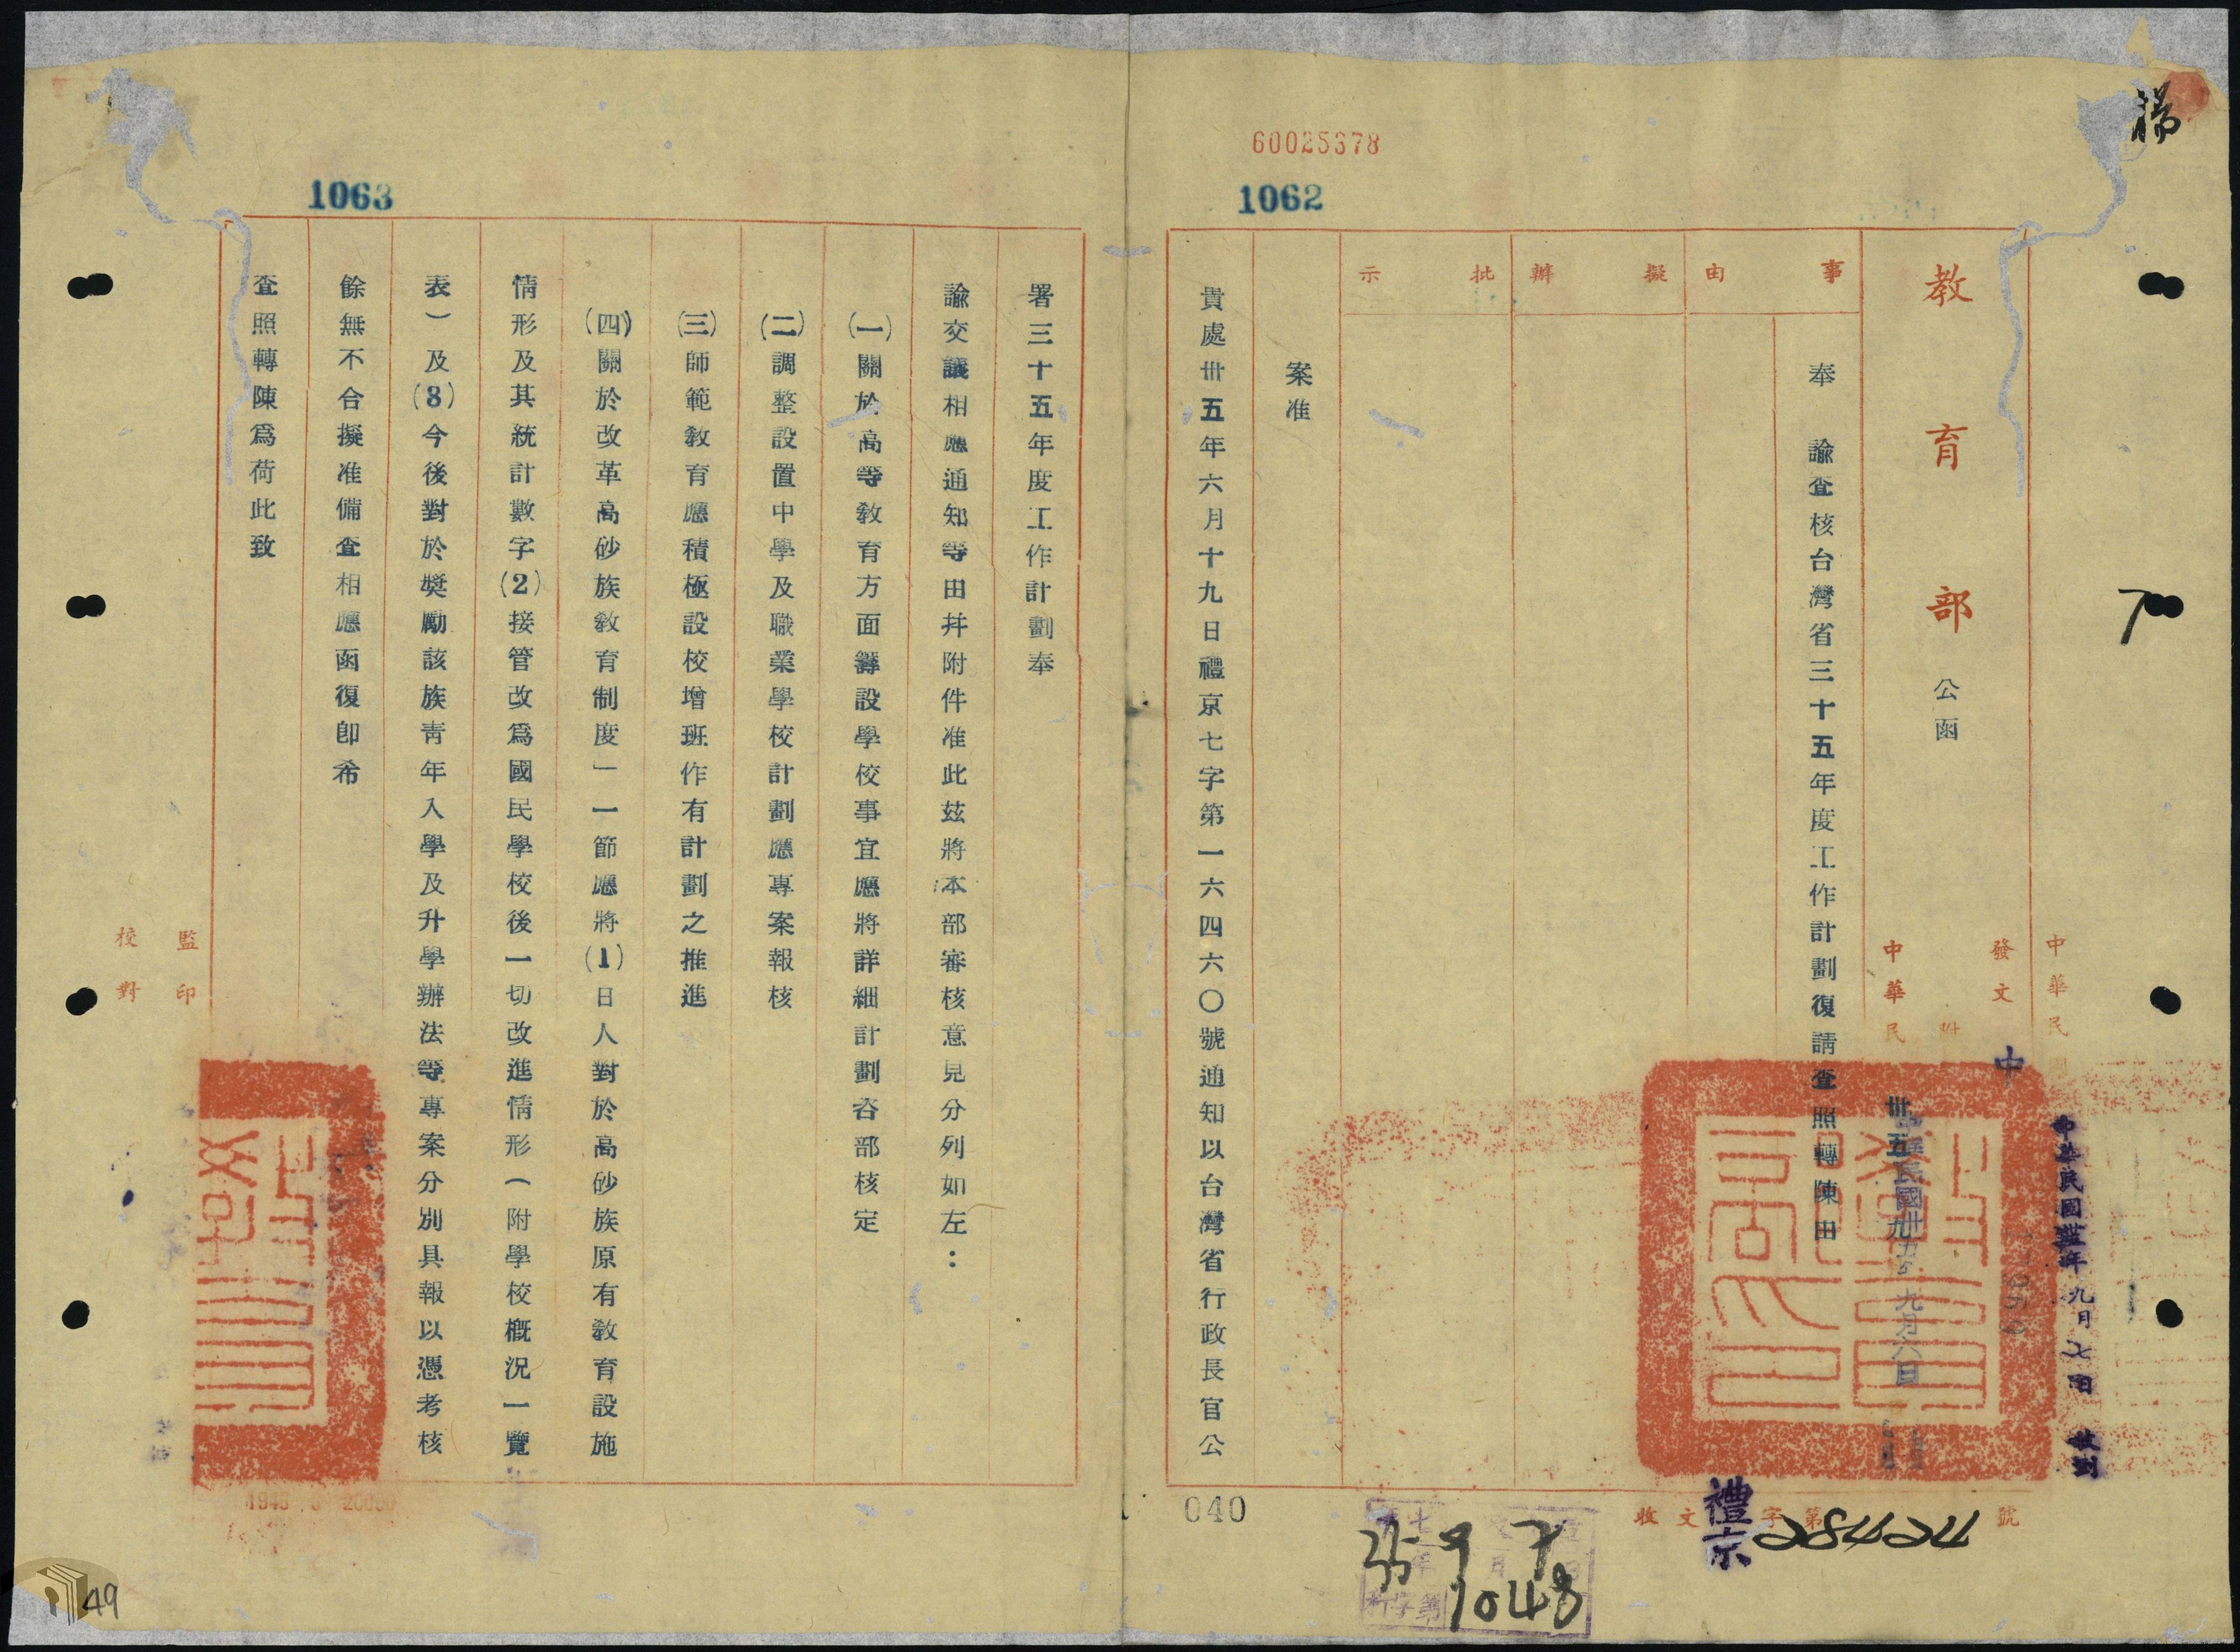 楊
60025378
1062
教育部公函
中華民
發文
附
中華民
中
卅五 九
中華民國卅五年九月六日
中華民國卅五年九月七日收到
事由
擬辦
批示
奉 諭查核台灣省三十五年度工作計劃復請查照轉陳由
案准
貴處卅五年六月十九日禮京七字第一六四六〇號通知以台灣省行政長官公
收文 字第 號
禮京 28424
35 9 7
1048
040
7
1063
署三十五年度工作計劃奉
諭交議相應通知等由并附件准此茲將本部審核意見分列如左：
(一)關於高等教育方面籌設學校事宜應將詳細計劃咨部核定
(二)調整設置中學及職業學校計劃應專案報核
(三)師範教育應積極設校增班作有計劃之推進
(四)關於改革高砂族教育制度」一節應將(1)日人對於高砂族原有教育設施
情形及其統計數字(2)接管改爲國民學校後一切改進情形(附學校概况一覽
表)及(3)今後對於獎勵該族靑年入學及升學辦法等專案分別具報以憑考核
餘無不合擬准備查相應函復卽希
查照轉陳爲荷此致
監印
校對
49